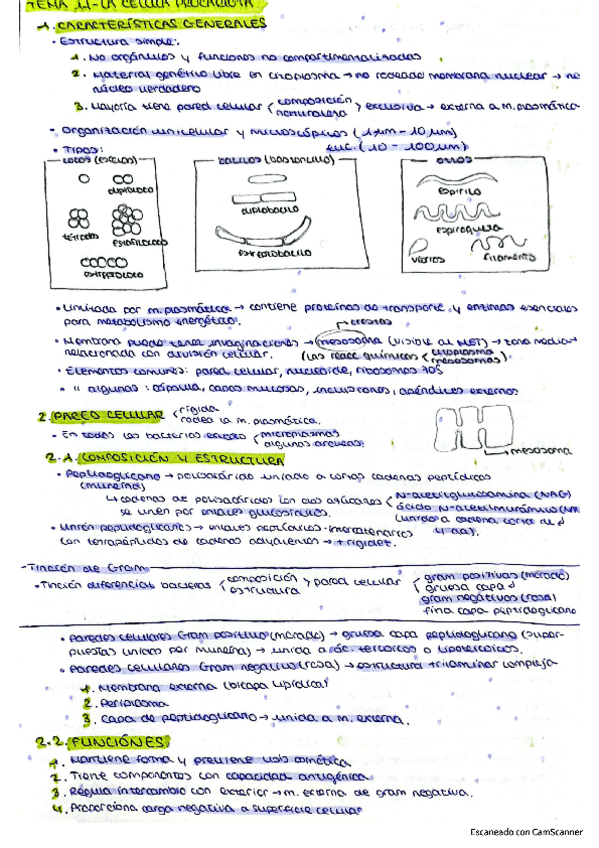 TEMA 11- LA CÉLULA PROCARIOTA
1. CARACTERÍSTICAS GENERALES
• Estructura simple:
1. No orgánulos y funciones no compartimentalizadas
2. Material genético libre en citoplasma → no rodeado membrana nuclear → no
núcleo verdadero
3. Mayoría tiene pared celular composición naturaleza exclusiva → externa a m. plasmática
• Organización unicelular y microscópicos (1µm - 10µm)
• Tipos: euc. (10 - 100µm)
cocos (esferas)
diplococo
tétradas
estafilococo
estreptococo
bacilos (bastoncillo)
diplobacilo
estreptobacilo
otros
espirilo
espiroqueta
vibrios
filamento
• Limitada por m. plasmática → contiene proteínas de transporte y enzimas esenciales
para metabolismo energético.
→ crestas
• Membrana puede tener invaginaciones → mesosoma (visible al MET) → zona
relacionada con división celular. (las reacc químicas citoplasma mesosomas)
• Elementos comunes: pared celular, nucleoide, ribosomas 70S
• " algunas: cápsula, capas mucosas, inclusiones, apéndices externos
2. PARED CELULAR rígida
rodea la m. plasmática.
• En todas las bacterias excepto micoplasmas
algunas arqueas.
→ mesosoma
2.1. COMPOSICIÓN Y ESTRUCTURA
• Peptidoglicano → polisacárido unido a cortas cadenas peptídicas
(mureína)
↳ cadenas de polisacáridos con dos azúcares N-acetilglucosamina (NAG)
se unen por enlaces glucosídicos. ácido N-acetilmurámico (NAM
(unido a cadena corta de
4 aa).
• Unión peptidoglicano → enlaces peptídicos intercatenarios
con tetrapéptidos de cadenas adyacentes → + rigidez.
Tinción de Gram
• Tinción diferencial bacterias composición estructura pared celular gram positivas (morado)
gruesa capa
gram negativas (rosa)
fina capa peptidoglicano
• Paredes celulares Gram positivo (morado) → gruesa capa peptidoglicano (super-
puestas unidas por mureína) → unida a ác. teicoicos o lipoteicoicos.
• Paredes celulares Gram negativo (rosa) → estructura trilaminar compleja
1. Membrana externa (bicapa lipídica)
2. Periplasma
3. Capa de peptidoglicano → unida a m. externa.
2.2. FUNCIÓNES
1. Mantiene forma y previene lisis osmótica
2. Tiene componentes con capacidad antigénica
3. Regula intercambio con exterior → m. externa de gram negativa.
4. Proporciona carga negativa a superficie celular
Escaneado con CamScanner